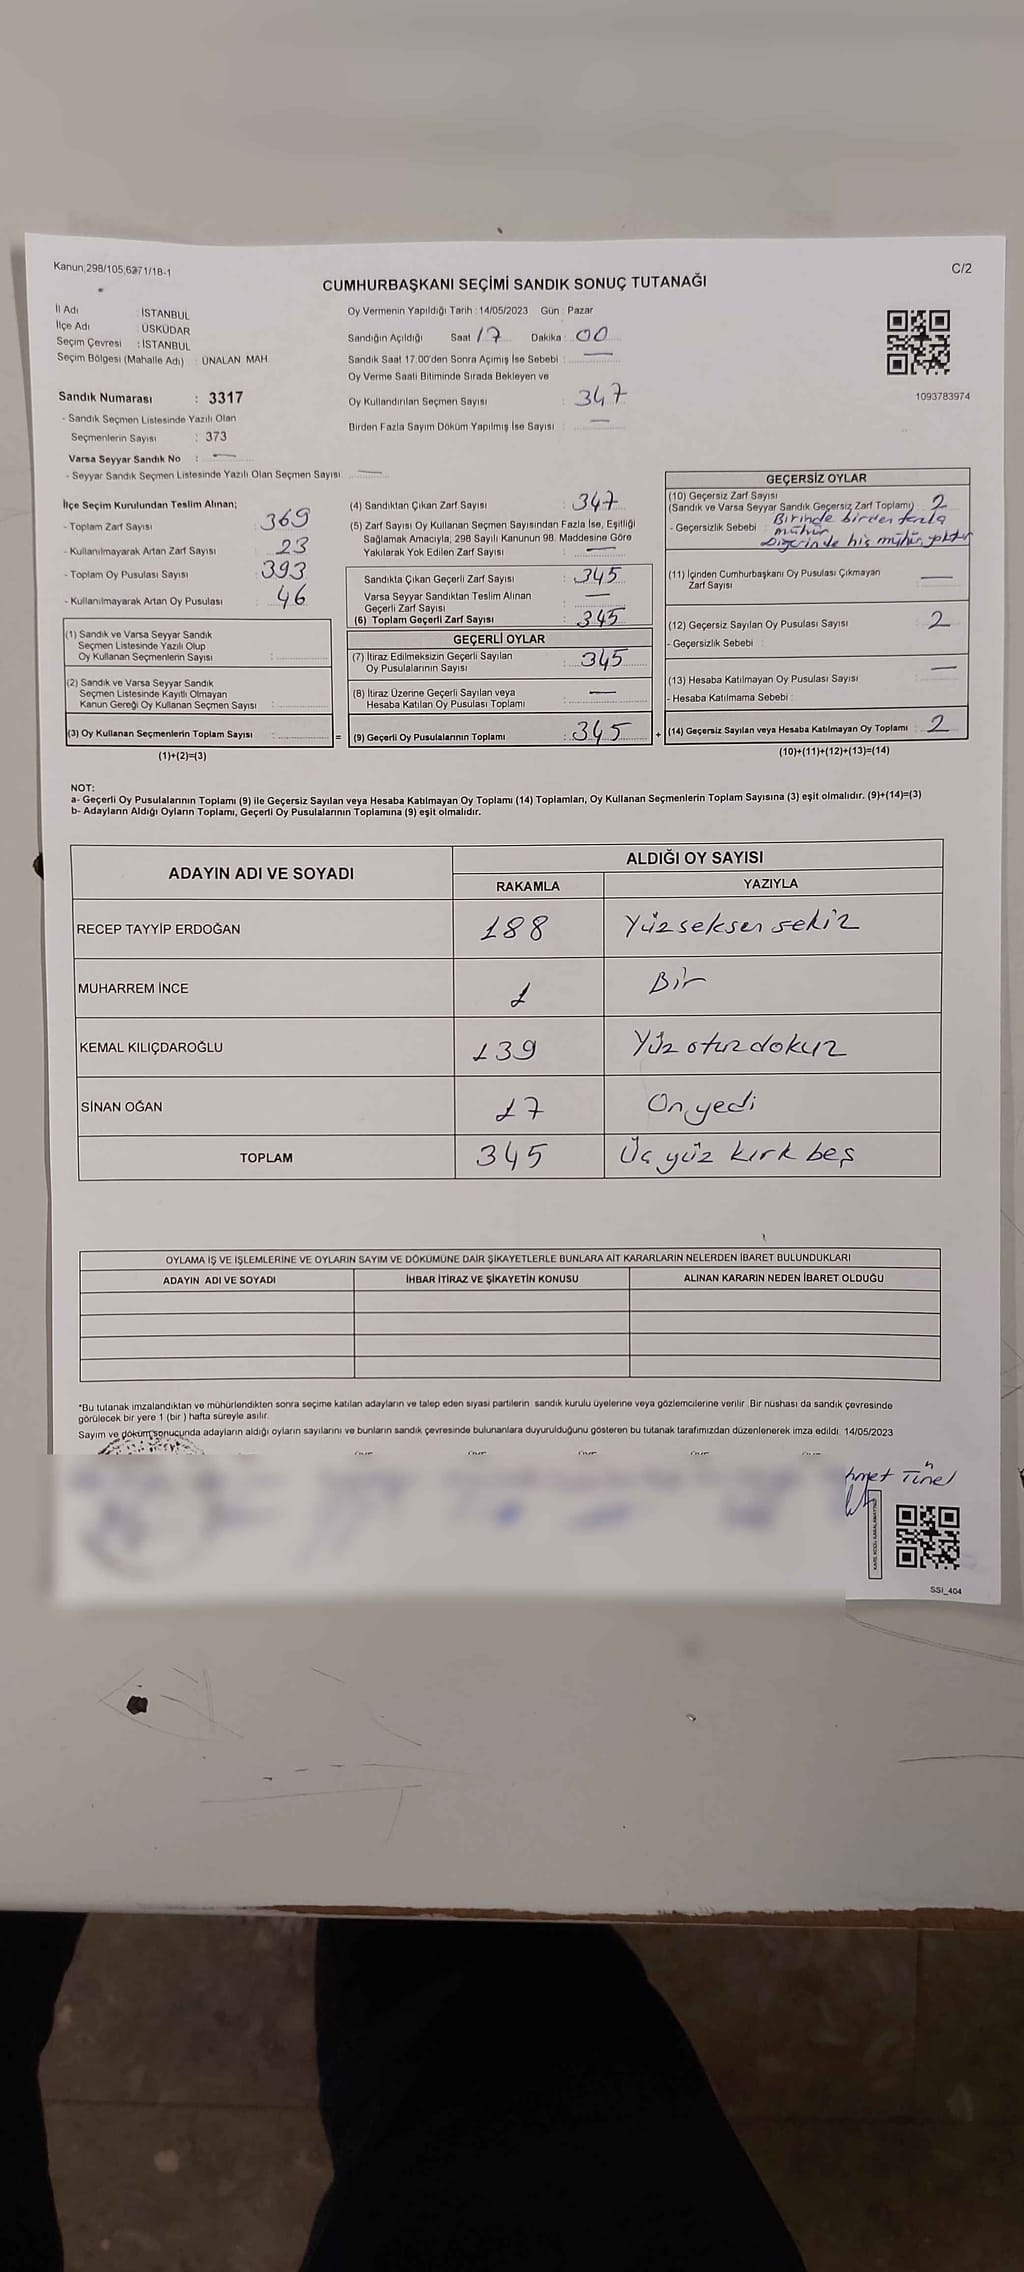 Kanun;298/105,6271/18-1
C/2
CUMHURBAŞKANI SEÇİMİ SANDIK SONUÇ TUTANAĞI
İl Adı : İSTANBUL
İlçe Adı : ÜSKÜDAR
Seçim Çevresi : İSTANBUL
Seçim Bölgesi (Mahalle Adı) : ÜNALAN MAH.
Sandık Numarası : 3317
- Sandık Seçmen Listesinde Yazılı Olan
Seçmenlerin Sayısı : 373
Varsa Seyyar Sandık No : —
- Seyyar Sandık Seçmen Listesinde Yazılı Olan Seçmen Sayısı : —
Oy Vermenin Yapıldığı Tarih : 14/05/2023 Gün : Pazar
Sandığın Açıldığı Saat 17 Dakika : 00
Sandık Saat 17:00'den Sonra Açımış İse Sebebi : —
Oy Verme Saati Bitiminde Sırada Bekleyen ve
Oy Kullandırılan Seçmen Sayısı : 347
Birden Fazla Sayım Döküm Yapılmış İse Sayısı : —
1093783974
İlçe Seçim Kurulundan Teslim Alınan;
- Toplam Zarf Sayısı : 369
- Kullanılmayarak Artan Zarf Sayısı : 23
- Toplam Oy Pusulası Sayısı : 393
- Kullanılmayarak Artan Oy Pusulası : 46
(1) Sandık ve Varsa Seyyar Sandık
Seçmen Listesinde Yazılı Olup
Oy Kullanan Seçmenlerin Sayısı :
(2) Sandık ve Varsa Seyyar Sandık
Seçmen Listesinde Kayıtlı Olmayan
Kanun Gereği Oy Kullanan Seçmen Sayısı :
(3) Oy Kullanan Seçmenlerin Toplam Sayısı : =
(1)+(2)=(3)
(4) Sandıktan Çıkan Zarf Sayısı : 347
(5) Zarf Sayısı Oy Kullanan Seçmen Sayısından Fazla İse, Eşitliği
Sağlamak Amacıyla, 298 Sayılı Kanunun 98. Maddesine Göre
Yakılarak Yok Edilen Zarf Sayısı : —
Sandıkta Çıkan Geçerli Zarf Sayısı : 345
Varsa Seyyar Sandıktan Teslim Alınan
Geçerli Zarf Sayısı : —
(6) Toplam Geçerli Zarf Sayısı : 345
GEÇERLİ OYLAR
(7) İtiraz Edilmeksizin Geçerli Sayılan
Oy Pusulalarının Sayısı : 345
(8) İtiraz Üzerine Geçerli Sayılan veya
Hesaba Katılan Oy Pusulası Toplamı : —
(9) Geçerli Oy Pusulalarının Toplamı : 345 +
GEÇERSİZ OYLAR
(10) Geçersiz Zarf Sayısı
(Sandık ve Varsa Seyyar Sandık Geçersiz Zarf Toplamı) : 2
- Geçersizlik Sebebi : Birinde birden fazla
mühür
Diğerinde hiç mühür yoktur
(11) İçinden Cumhurbaşkanı Oy Pusulası Çıkmayan
Zarf Sayısı : —
(12) Geçersiz Sayılan Oy Pusulası Sayısı : 2
- Geçersizlik Sebebi :
(13) Hesaba Katılmayan Oy Pusulası Sayısı : —
- Hesaba Katılmama Sebebi :
(14) Geçersiz Sayılan veya Hesaba Katılmayan Oy Toplamı : 2
(10)+(11)+(12)+(13)=(14)
NOT:
a- Geçerli Oy Pusulalarının Toplamı (9) ile Geçersiz Sayılan veya Hesaba Katılmayan Oy Toplamı (14) Toplamları, Oy Kullanan Seçmenlerin Toplam Sayısına (3) eşit olmalıdır. (9)+(14)=(3)
b- Adayların Aldığı Oyların Toplamı, Geçerli Oy Pusulalarının Toplamına (9) eşit olmalıdır.
ADAYIN ADI VE SOYADI
ALDIĞI OY SAYISI
RAKAMLA YAZIYLA
RECEP TAYYİP ERDOĞAN 188 Yüzseksen sekiz
MUHARREM İNCE 1 Bir
KEMAL KILIÇDAROĞLU 139 Yüz otuz dokuz
SİNAN OĞAN 17 On yedi
TOPLAM 345 Üç yüz kırk beş
OYLAMA İŞ VE İŞLEMLERİNE VE OYLARIN SAYIM VE DÖKÜMÜNE DAİR ŞİKAYETLERLE BUNLARA AİT KARARLARIN NELERDEN İBARET BULUNDUKLARI
ADAYIN ADI VE SOYADI İHBAR İTİRAZ VE ŞİKAYETİN KONUSU ALINAN KARARIN NEDEN İBARET OLDUĞU
*Bu tutanak imzalandıktan ve mühürlendikten sonra seçime katılan adayların ve talep eden siyasi partilerin sandık kurulu üyelerine veya gözlemcilerine verilir. Bir nüshası da sandık çevresinde
görülecek bir yere 1 (bir) hafta süreyle asılır.
Sayım ve döküm sonucunda adayların aldığı oyların sayılarını ve bunların sandık çevresinde bulunanlara duyurulduğunu gösteren bu tutanak tarafımızdan düzenlenerek imza edildi. 14/05/2023
hmet Tünel
KARE KODU KARALAMAYINIZ
SSI_404